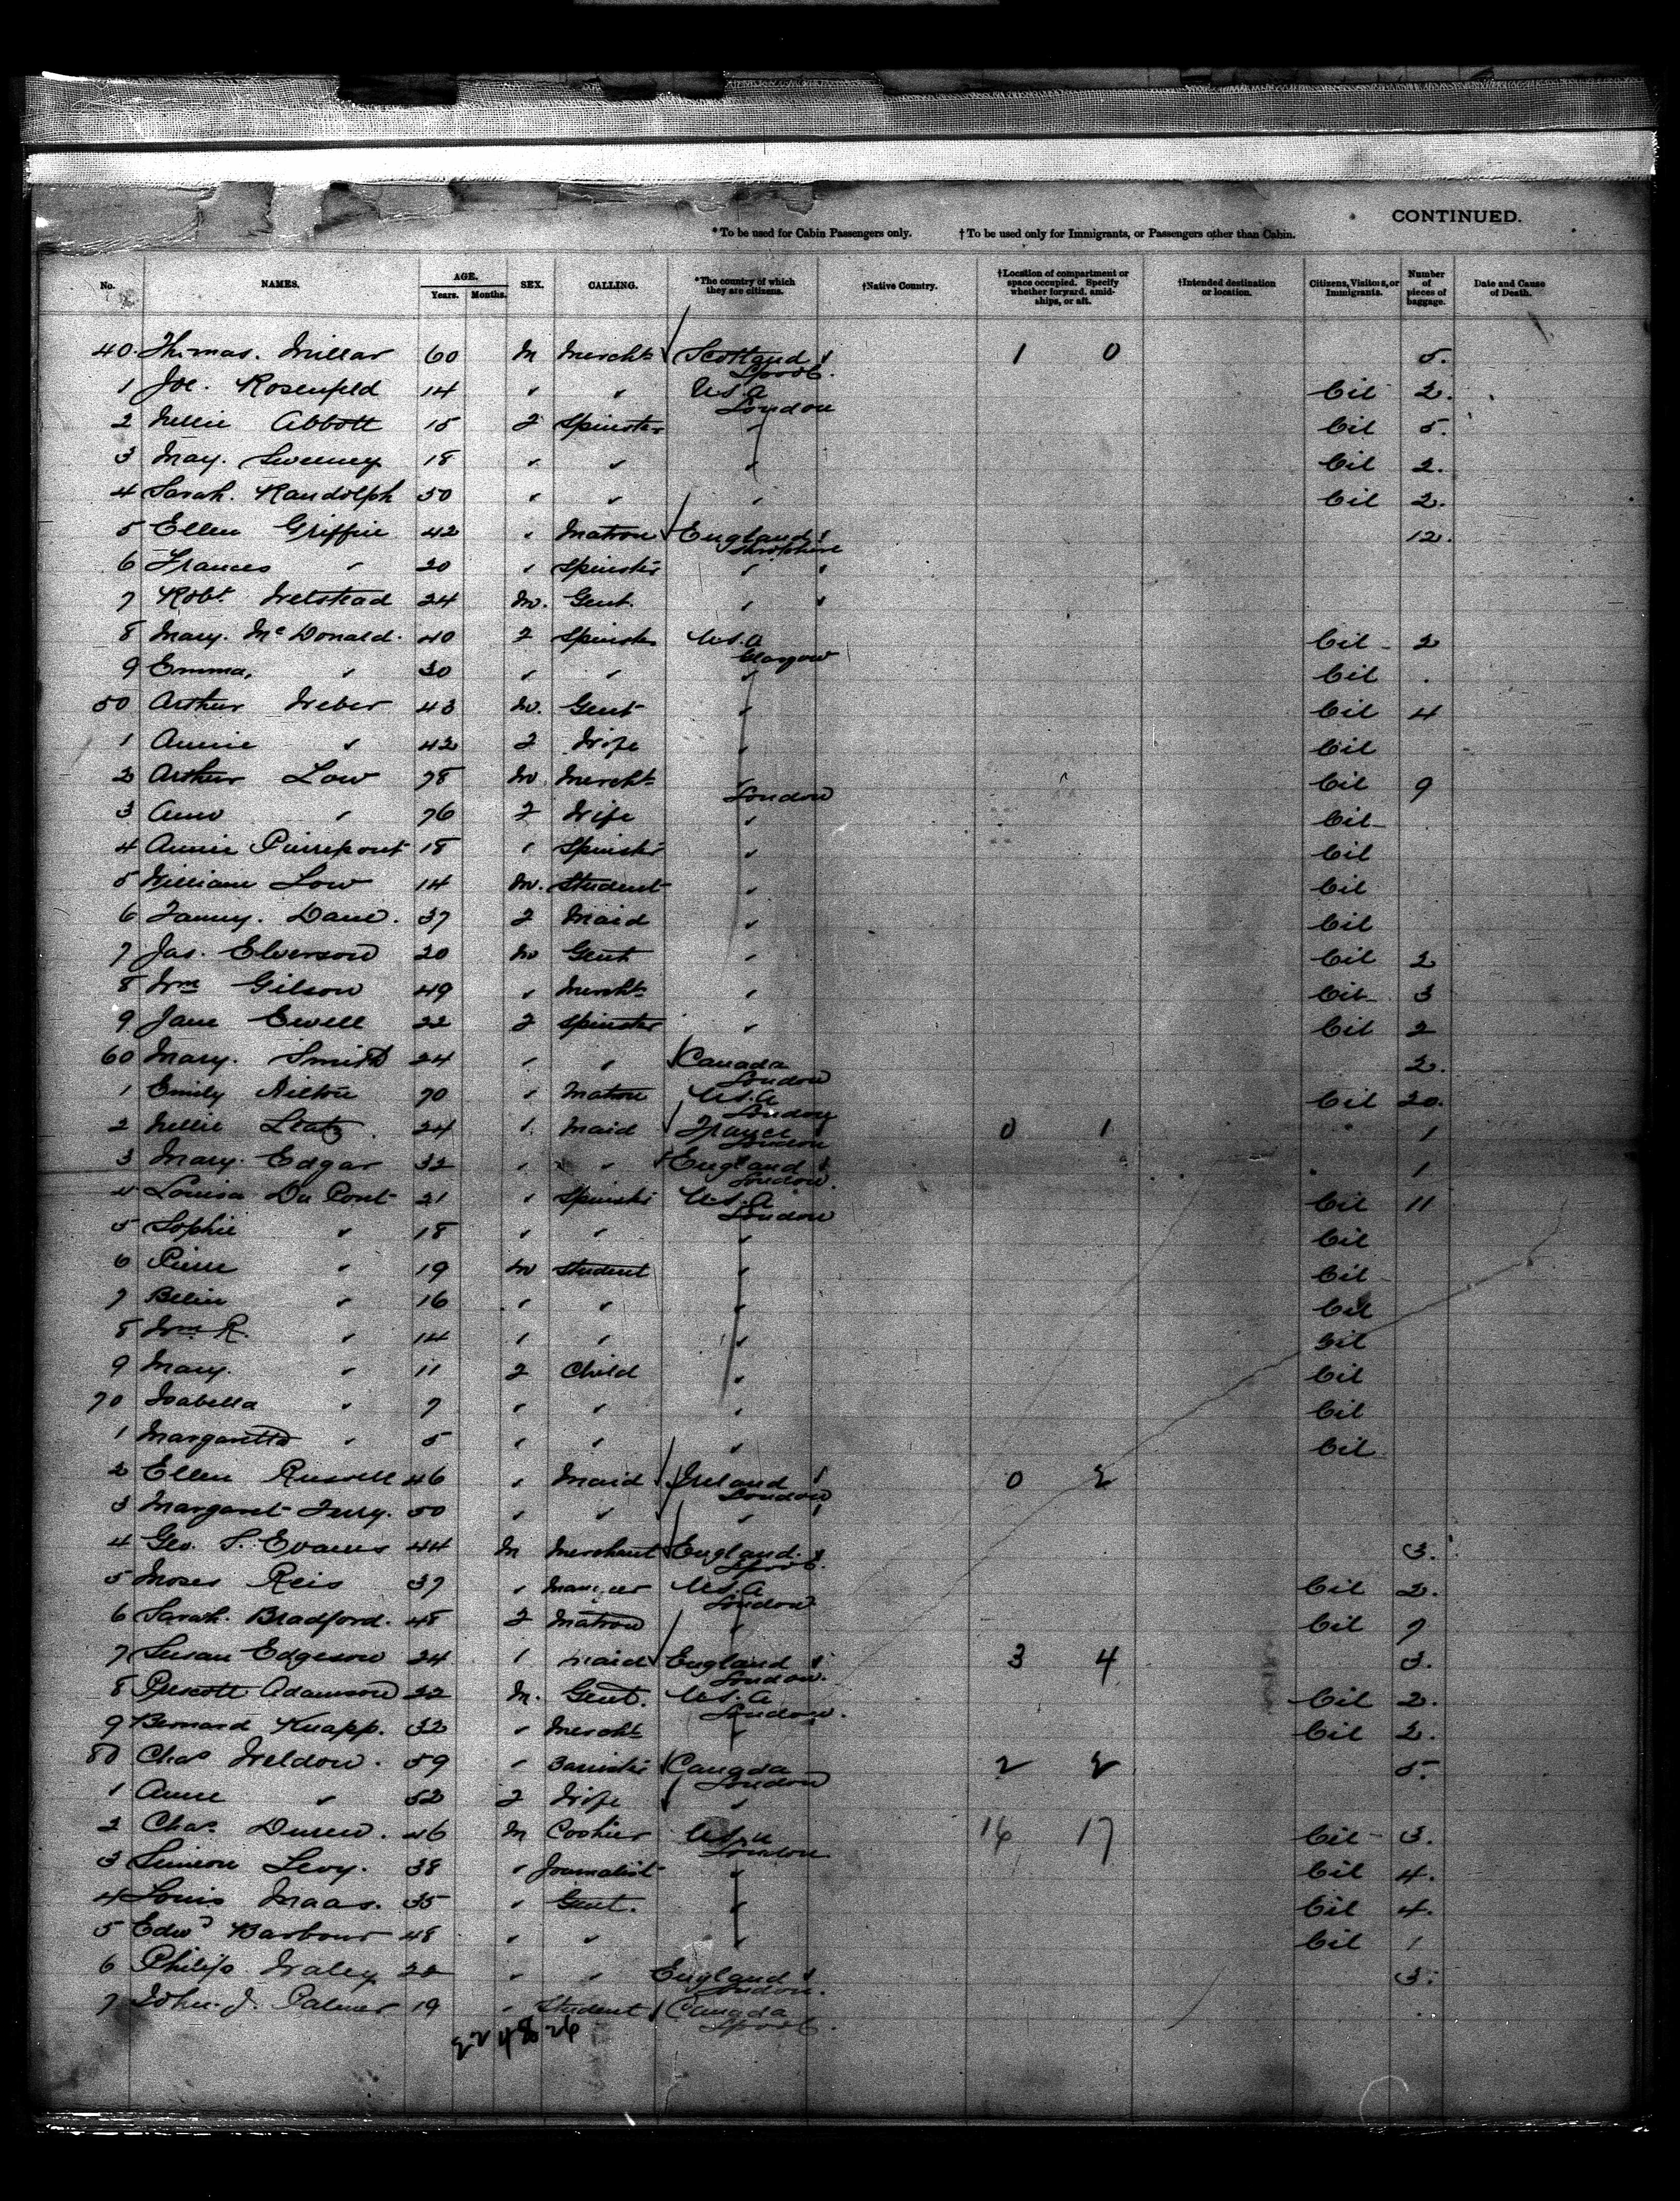 CONTINUED.
* To be used for Cabin Passengers only. † To be used only for Immigrants, or Passengers other than Cabin.
No. NAMES. AGE. Years. Months. SEX. CALLING. *The country of which they are citizens. †Native Country. †Location of compartment or space occupied. Specify whether forward, amidships, or aft. †Intended destination or location. Citizens, Visitors, or Immigrants. Number of pieces of baggage. Date and Cause of Death.
40. Thomas. Millar 60 M Mercht Scotland 1 0 5.
Lpool.
1 Joe. Rosenfeld 14 " " U.S.A Cit 2.
London
2 Nellie Abbott 15 F Spinster " Cit 5.
3 May. Sweeney 18 " " " Cit 2.
4 Sarah. Randolph 50 " " " Cit 2.
5 Ellen Griffin 42 " Matron England 12.
Shropshire
6 Frances " 20 " Spinster " "
7 Robt. Welstead 24 M. Gent. " "
8 Mary. McDonald. 40 F Spinster U.S.A Cit 2
Glasgow
9 Emma, " 30 " " " Cit .
50 Arthur Weber 43 M. Gent " Cit 4
1 Annie " 42 F Wife " Cit
2 Arthur Low 78 M Mercht Cit 9
London
3 Ann " 76 F Wife " Cit
4 Annie Pierrepont 18 " Spinster " Cit
5 William Low 14 M. Student " Cit
6 Fanny. Dane. 37 F Maid " Cit
7 Jas. Elverson 20 M Gent " Cit 2
8 Wm Gilson 49 " Mercht " Cit 3
9 Jane Ewell 22 F Spinster " Cit 2
60 Mary. Smith 24 " " Canada 2.
London
1 Emily 70 " Matron U.S.A Cit 20.
London
2 Nellie 24 " Maid France 0 1 1
London
3 Mary. Edgar 32 " " England 1
London.
4 Louisa Du Pont 21 " Spinster U.S.A Cit 11
London
5 Sophie " 18 " " " Cit
6 Pierre " 19 M Student " Cit
7 Belin " 16 " " " Cit
8 Wm R. " 14 " " " Cit
9 Mary. " 11 F Child " Cit
70 Isabella " 7 " " " Cit
1 Margaretta " 5 " " " Cit
2 Ellen Russell 46 " Maid Ireland 0 2
London
3 Margaret 50 " " " "
4 Geo. S. Evans 44 M Merchant England. 3.
Lpool.
5 Moses Reis 37 " Manager U.S.A Cit 2.
London
6 Sarah. Bradford. 48 F Matron " Cit 7
7 Susan Edgeson 24 " Maid England 3 4 3.
London.
8 Prescott Adamson 22 M. Gent. U.S.A Cit 2.
London.
9 Bernard Knapp. 32 " Mercht " Cit 2.
80 Chas Weldon. 59 " Barrister Canada 2 2 5.
London
1 Anne " 52 F Wife "
2 Chas. 46 M U.S.A 16 17 Cit 3.
London
3 Simeon Levy. 38 " Journalist " Cit 4.
4 Louis Maas. 35 " Gent. " Cit 4.
5 Edwd Barbour 48 " " " Cit 1
6 Philip Waley 22 " " England 3.
London.
7 John. J. Palmer 19 " Student Canada .
Lpool.